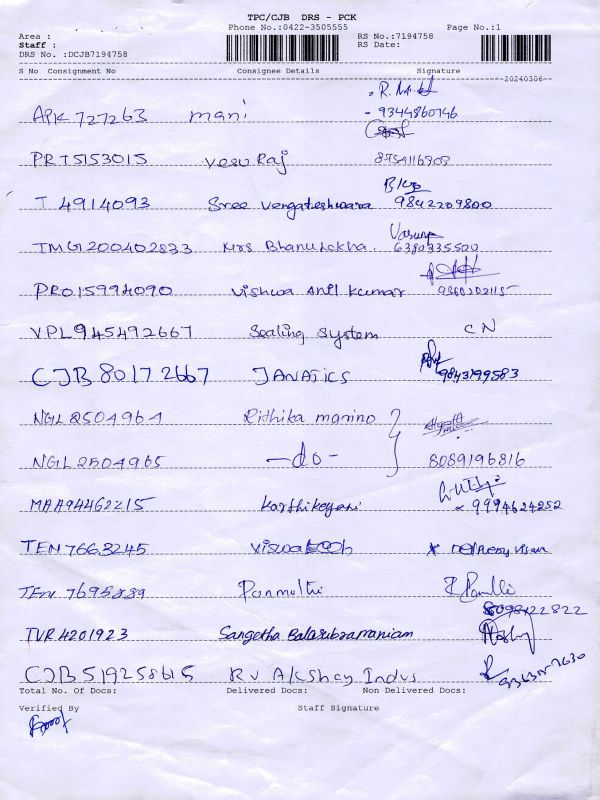 TPC/CJB DRS - PCK
Phone No.:0422-3505555 Page No.:1
Area : RS No.:7194758
Staff : RS Date:
DRS No. :DCJB7194758
S No Consignment No Consignee Details Signature
20240306
APK 727263 mani - 9344860746
PRT5153015 Yesu Raj
T 4914093 Sree Vengateshwara 9842209800
TMG1200402833 Mrs Bhanulekha. 6380335500
PRO15994090 Vishwa Anil kumar
VPL945492667 Sealing System C N
CJB 80172667 JANATICS 9843199583
NGL 2504964 Rithika manino
NGL 2504965 -do- 8089196816
MAA94462215 Karthikeyani 9994624252
TEN 7663245
TEN 7695889
TVR 4201923 Sangetha Balasubramaniam
CJB 519258615 RV Akshay Indus
Total No. Of Docs: Delivered Docs: Non Delivered Docs:
Verified By Staff Signature